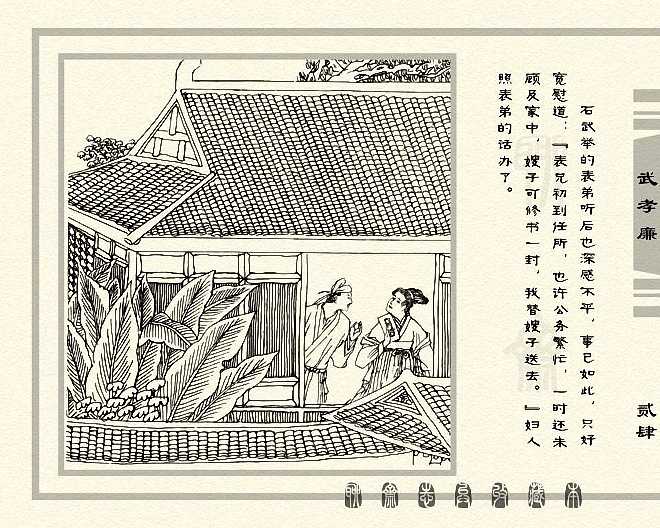 石武举的表弟听后也深感不平，事已如此，只好
宽慰道：“表兄初到任所，也许公务繁忙，一时还未
顾及家中，嫂子可修书一封，我替嫂子送去。”妇人
照表弟的话办了。
武孝廉
贰肆
聊斋志异收藏本